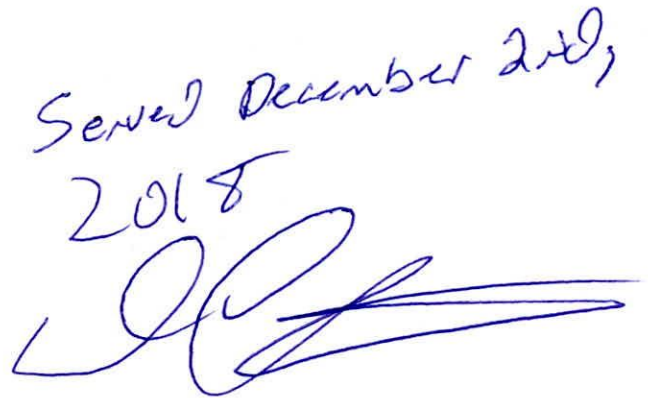 Served December 2nd,
2018